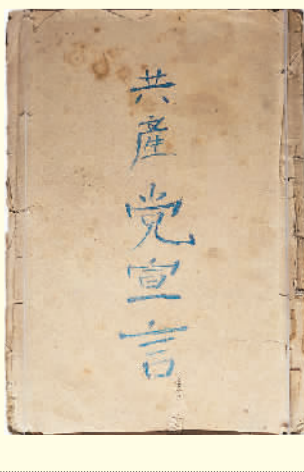 共產党宣言